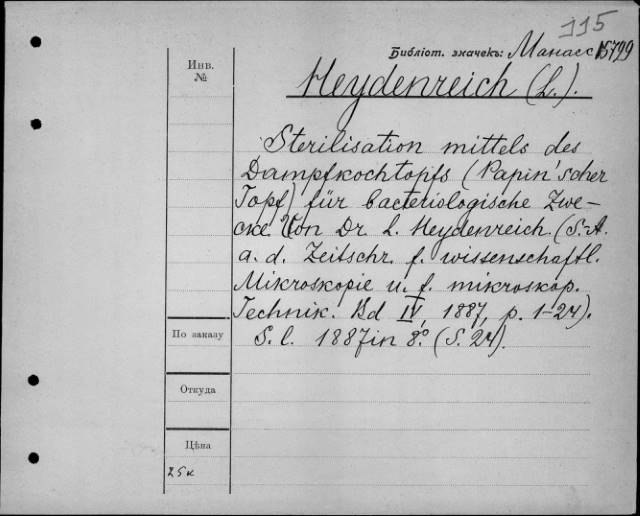 115
Библіот. значекъ: Манасс 15729
Инв.
№
Heydenreich (L.).
Sterilisation mittels des
Dampfkochtopfs (Papin'scher
Topf) für bacteriologische Zwe-
cke. Von Dr L. Heydenreich (S.-A.
a. d. Zeitschr. f. wissenschaftl.
Mikroskopie u. f. mikroskop.
Technik. Bd IV, 1887, p. 1-24).
S. l. 1887 in 8º. (S. 24).
По заказу
Откуда
Цѣна
25 к